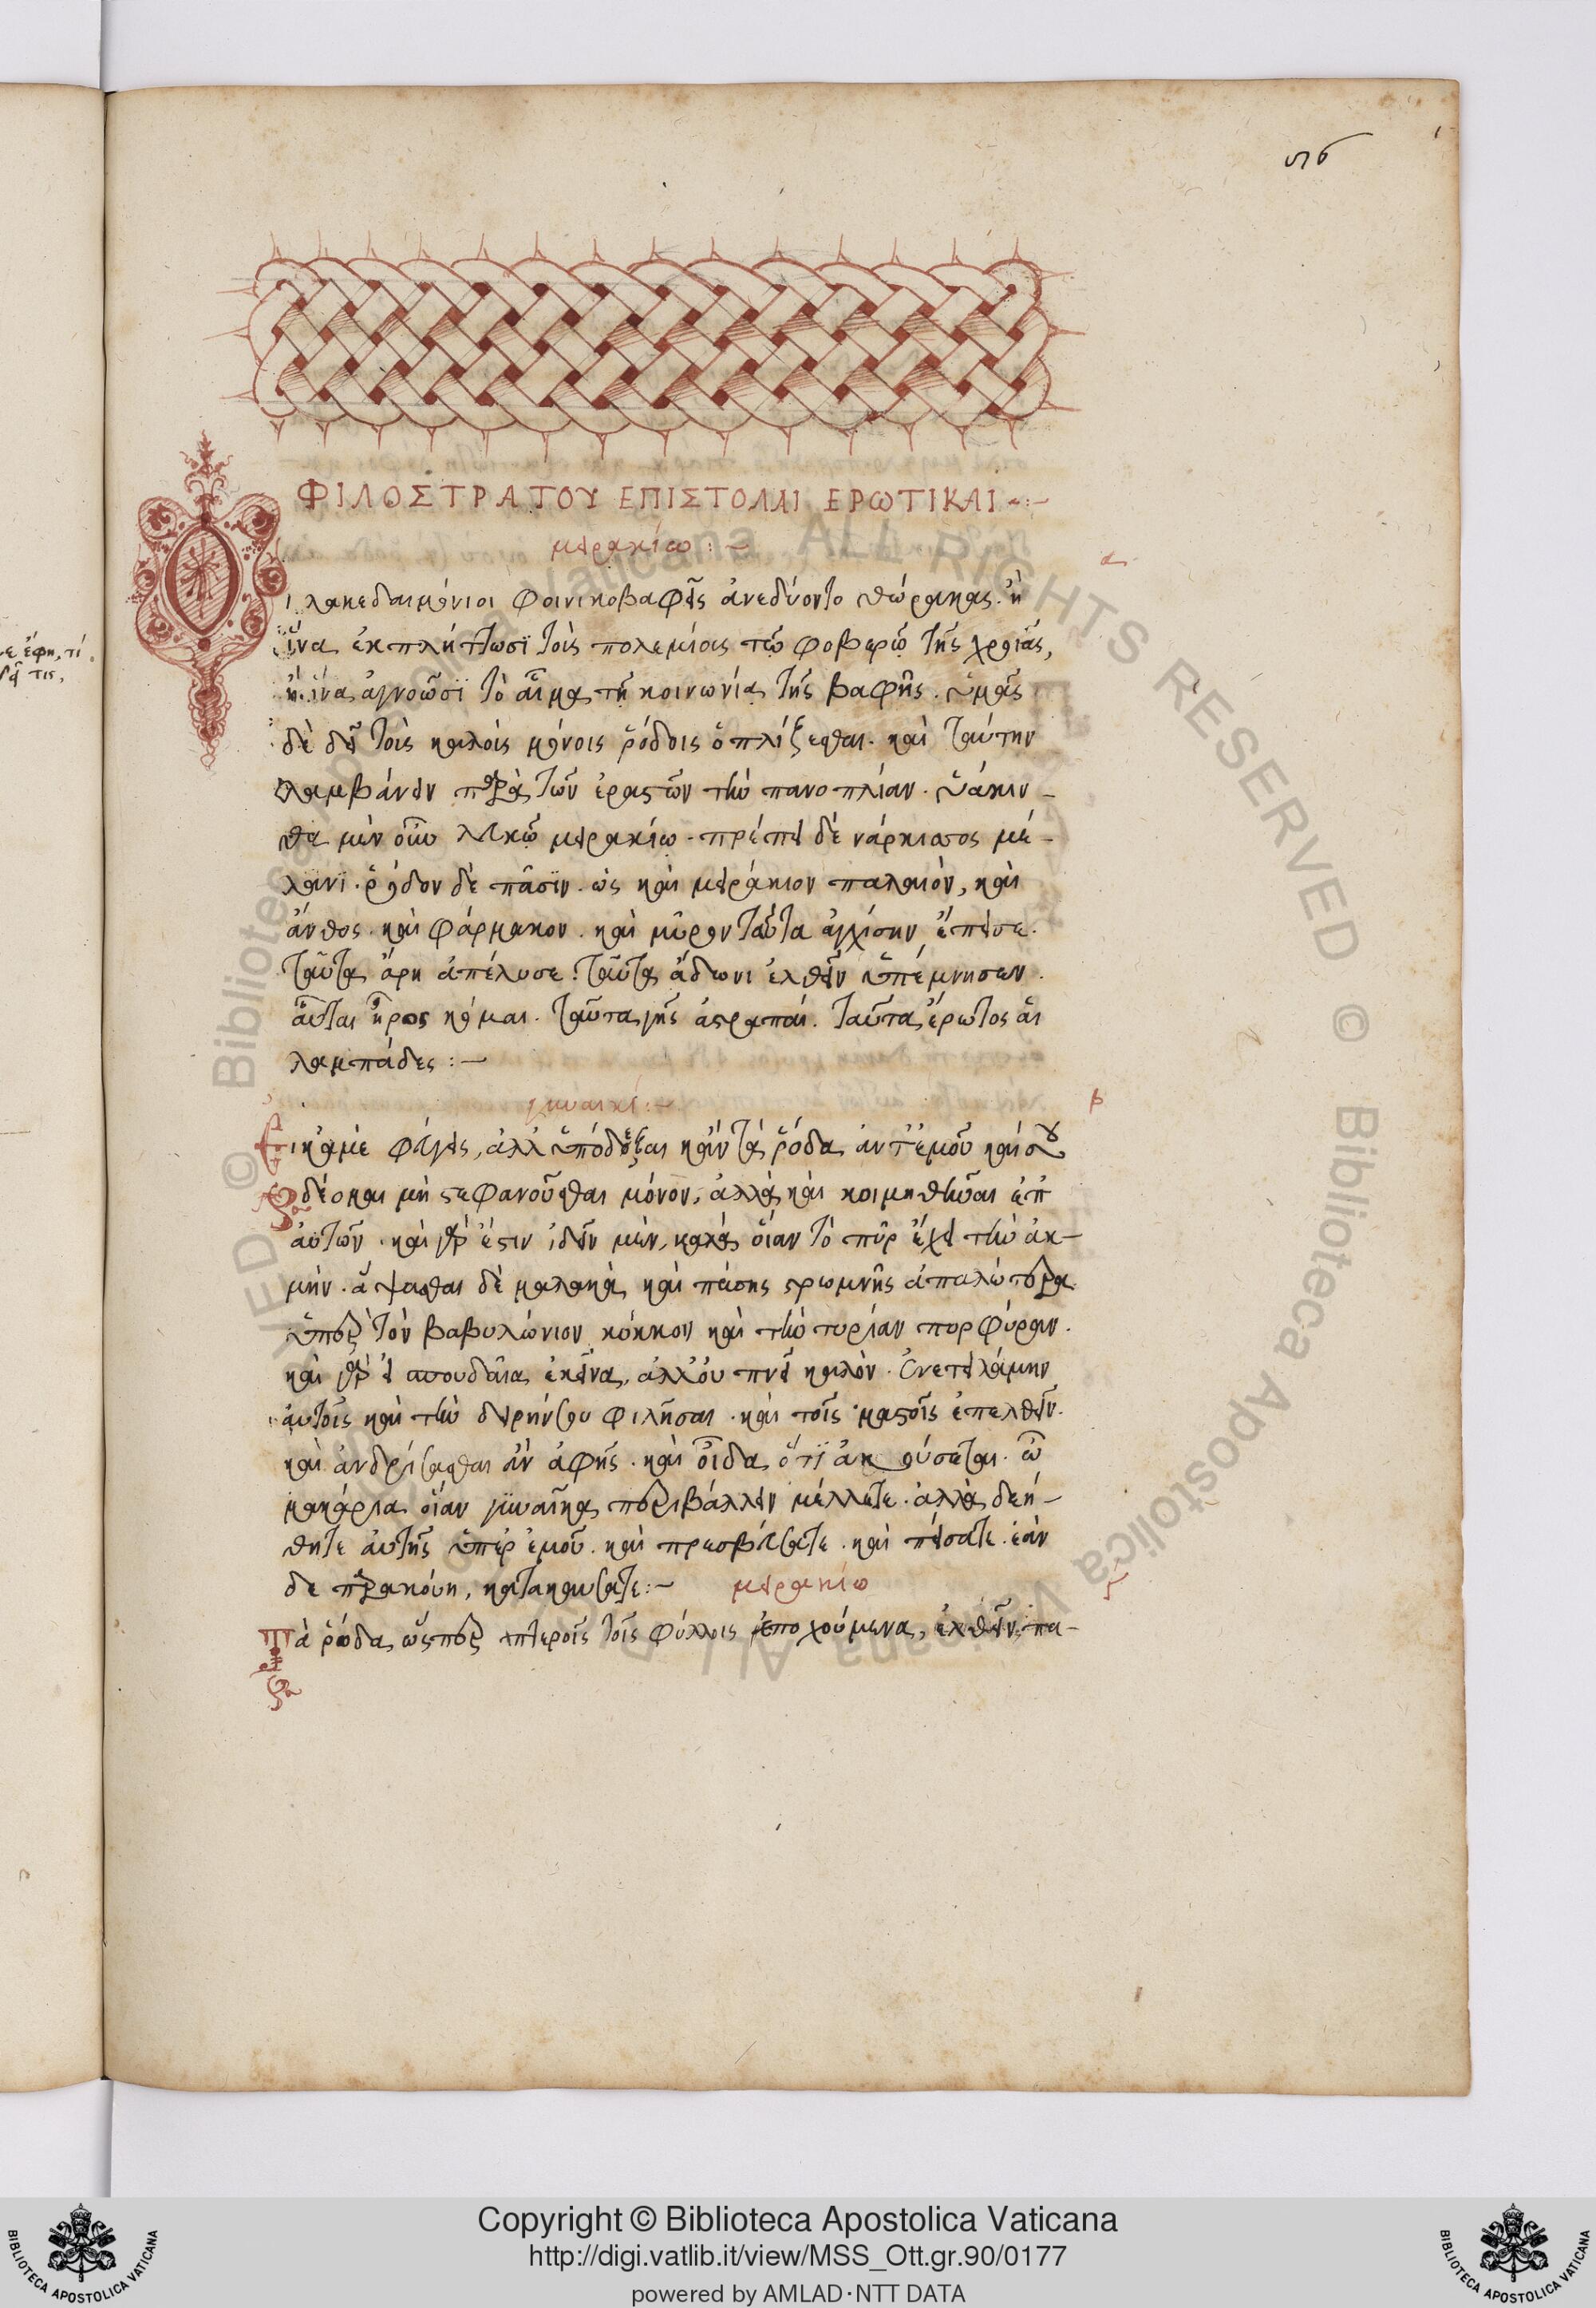 ΦΙΛΟΣΤΡΑΤΟΥ ΕΠΙΣΤΟΛΑΙ ΕΡΩΤΙΚΑΙ
μειρακίω :-
α
Οἱ λακεδαιμόνιοι φοινικοβαφεῖς ἀνεδύοντο θώρακας. ἢ
ἵνα ἐκπλήττωσϊ τοῖς πολεμίοις τῷ φοβερῷ τῆς χροιᾶς,
ἢ ἵνα ἀγνοῶσϊ τὸ αἷμα τῇ κοινωνίᾳ τῆς βαφῆς. ὑμᾶς
δὲ δεῖ τοῖς καλοῖς μόνοις ῥόδοις ὁπλίζεσθαι. καὶ ταύτην
λαμβάνειν παρὰ τῶν ἐραστῶν τὴν πανοπλίαν. ὑάκιν-
θα μὲν οὖν λευκῷ μειρακίω. πρέπει δὲ νάρκισσος μέ-
λανϊ. ῥόδον δὲ πᾶσϊν. ὡς καὶ μειράκιον παλαιὸν, καὶ
ἄνθος. καὶ φάρμακον. καὶ μῦρον ταῦτα ἀγχίσην ἔπεισε.
ταῦτα ἄρη ἀπέλυσε. ταῦτα ἄδωνι ἐλθεῖν ὑπέμνησεν.
αὗται ἦρος κόμαι. ταῦτα γῆς ἀστραπαί. ταῦτα ἔρωτος αἱ
λαμπάδες :-
γυναικί :-
β
Εἰ κἀμὲ φεύγεις, ἀλλ' ὑπόδεξαι κἂν τὰ ῥόδα ἀντ' ἐμοῦ καί σου
δέομαι μὴ στεφανοῦσθαι μόνον, ἀλλὰ καὶ κοιμηθῆναι ἐπ'
αὐτῶν. καὶ γὰρ ἔστιν ἰδεῖν μὲν, καλὰ οἵαν τὸ πῦρ ἔχει τὴν ἀκ-
μήν. ἅψασθαι δὲ μαλακὰ καὶ πάσης στρωμνῆς ἁπαλώτερα
ὑπὲρ τὸν βαβυλώνιον κόκκον καὶ τὴν τυρίαν πορφύραν.
καὶ γὰρ εἰ σπουδαῖα ἐκεῖνα, ἀλλ' οὐ πνεῖ καλὸν. Ἐνετειλάμην
αὐτοῖς καὶ τὴν δειρήν σου φιλῆσαι. καὶ τοῖς μαστοῖς ἐπελθεῖν.
καὶ ἀνδρίσασθαι ἂν ἀφῇς. καὶ οἶδα ὅτϊ ἀκούσεται. ὦ
μακάρια οἵαν γυναῖκα περιβάλλειν μέλλετε. ἀλλὰ δεή-
θητε αὐτῆς ὑπὲρ ἐμοῦ. καὶ πρεσβεύσατε. καὶ πείσατε. ἐὰν
δε παρακούῃ, κατακαύσατε :- μειρακίω
γ
Τὰ ῥόδα ὥσπερ πτεροῖς τοῖς φύλλοις ἐποχούμενα, ἐλθεῖν πα-
Copyright © Biblioteca Apostolica Vaticana
http://digi.vatlib.it/view/MSS_Ott.gr.90/0177
powered by AMLAD·NTT DATA
BIBLIOTECA APOSTOLICA VATICANA
BIBLIOTECA APOSTOLICA VATICANA